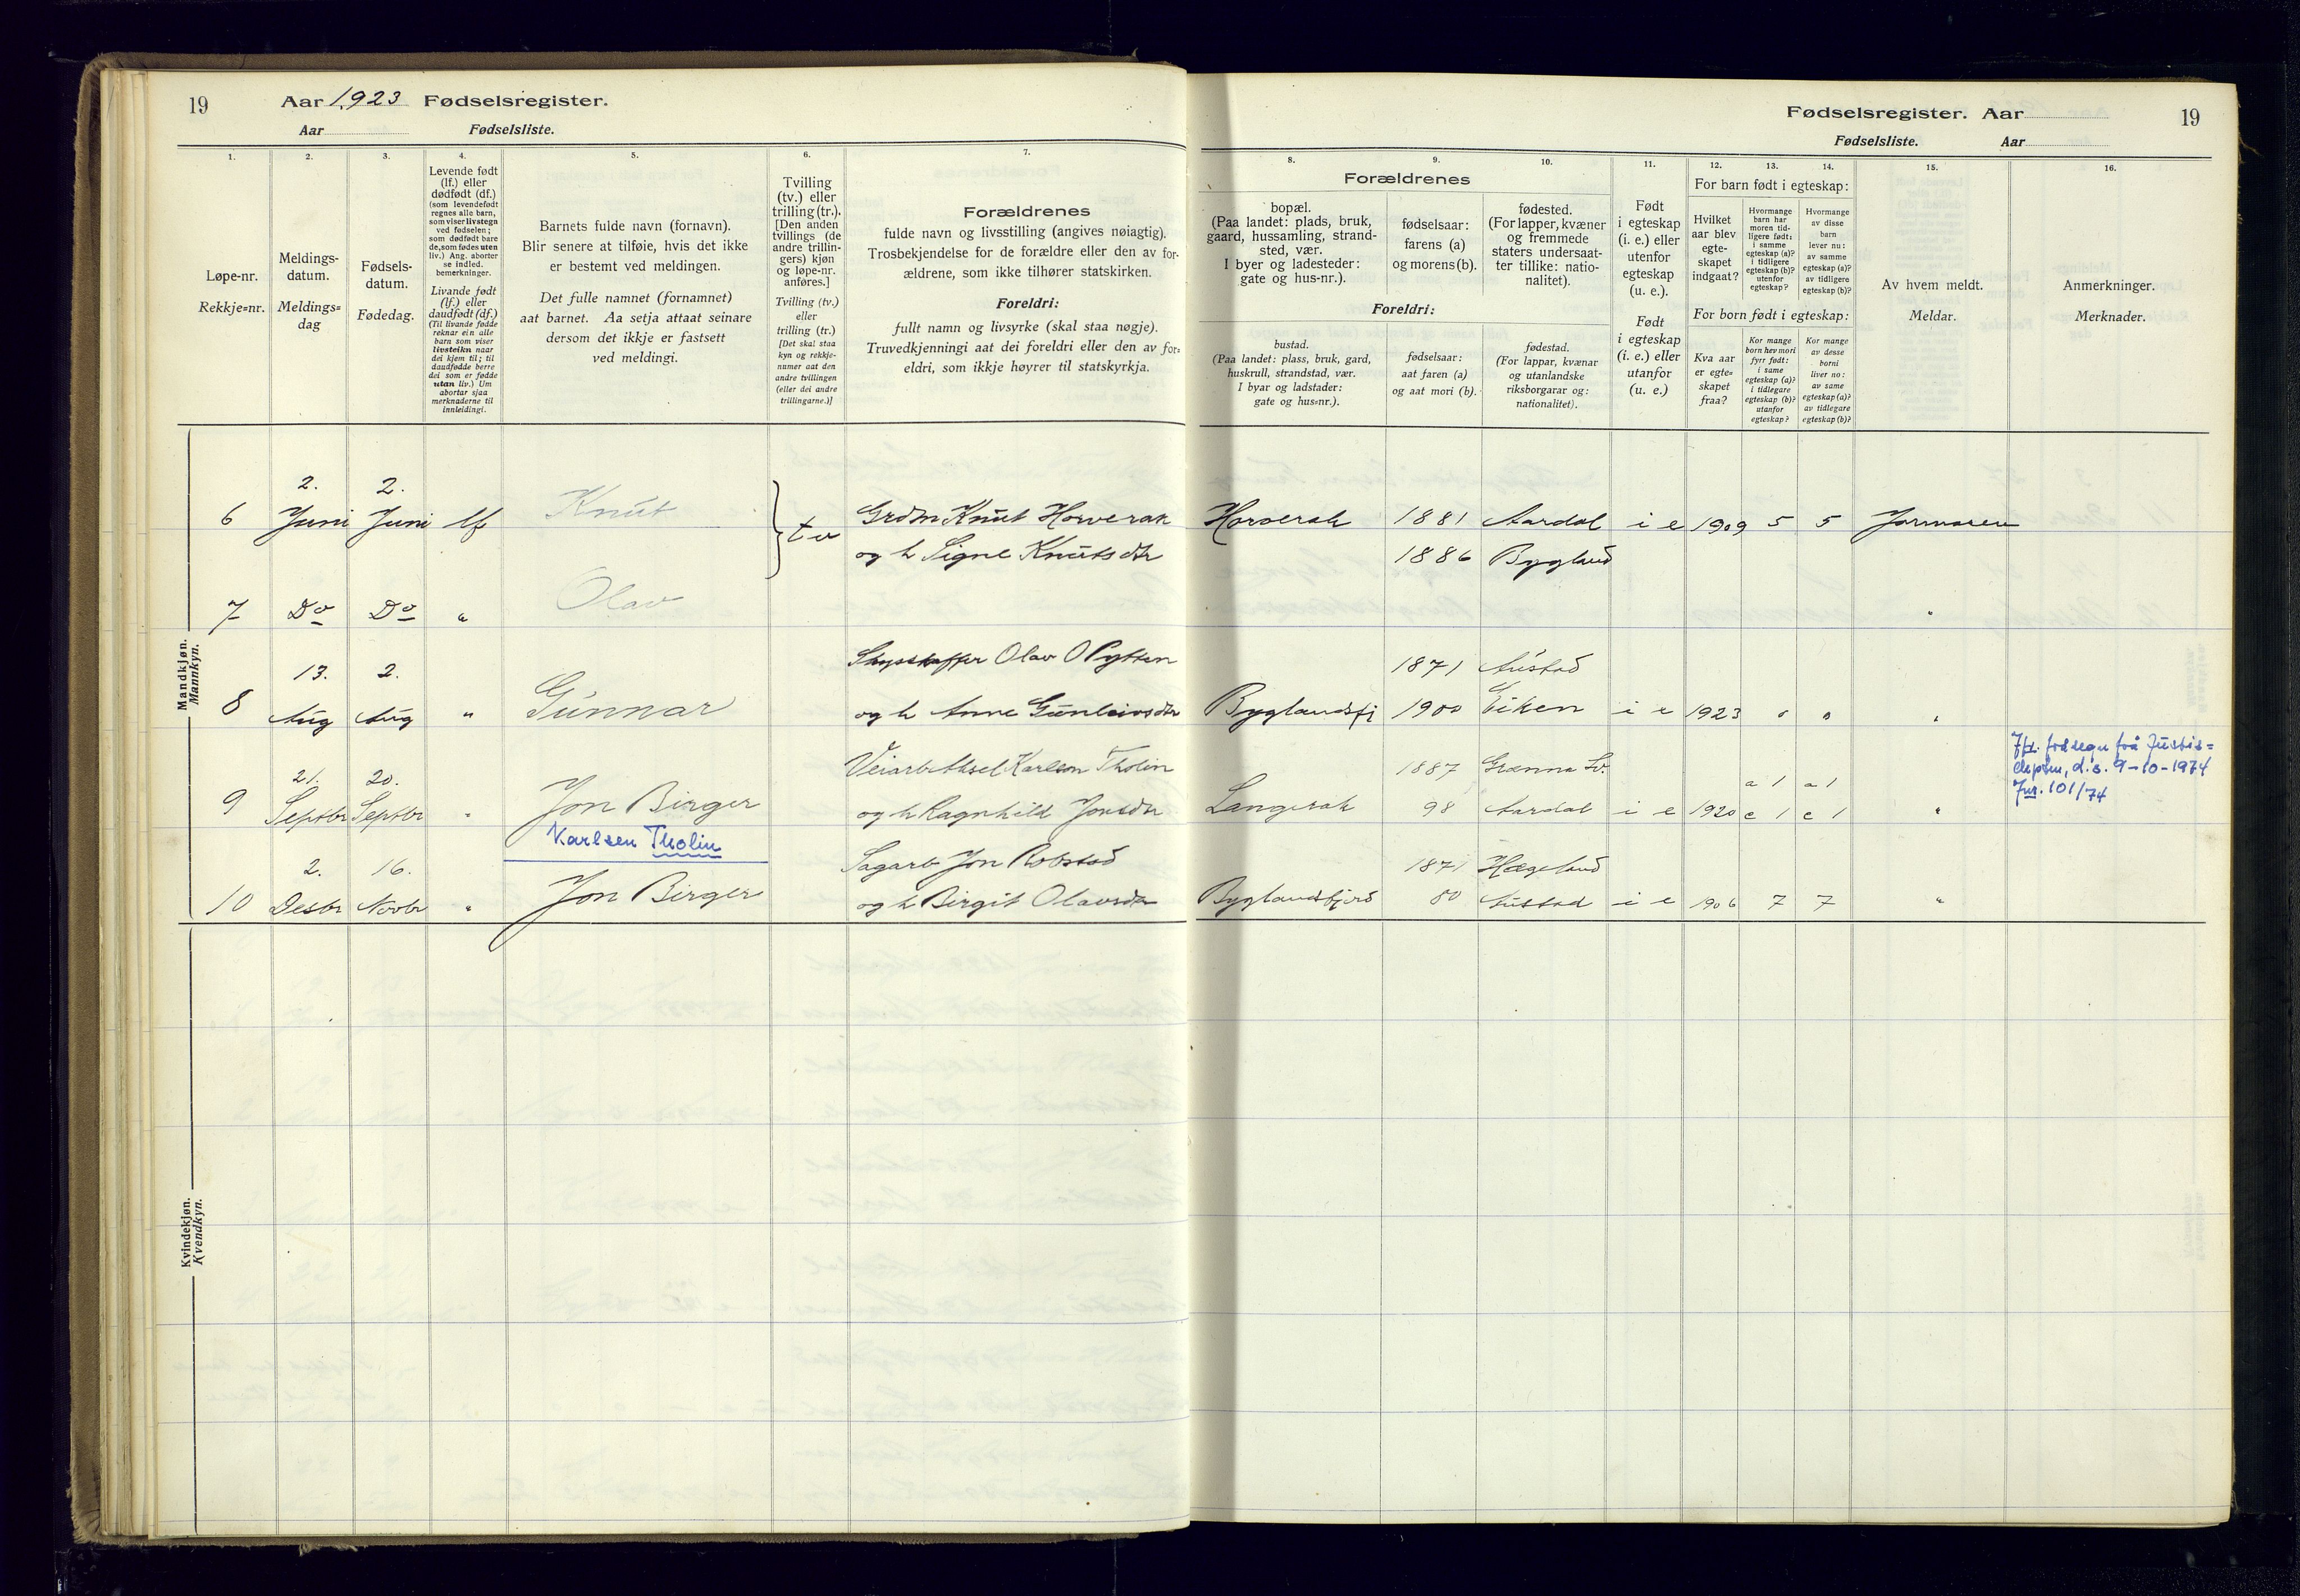 19 Aar 1923 Fødselsregister.
Aar Fødselsliste.
1. 2. 3. 4. 5. 6. 7.
Løpe-nr.
Rekkje=nr.
Meldings-
datum.
Meldings=
dag
Fødsels-
datum.
Fødedag.
Levende født
(lf.) eller
dødfødt (df.)
(som levendefødt
regnes alle barn,
som viser livstegn
ved fødselen;
som dødfødt bare
de, som fødes uten
liv.) Ang. aborter
se indled.
bemerkninger.
Livande født
(lf.) eller
daudfødt (df.)
(Til livande fødde
reknar ein alle
barn som viser
livsteikn naar
dei kjem til; til
daudfødde berre
dei som er fødde
utan liv.) Um
abortar sjaa
merknaderne til
innleidingi.
Barnets fulde navn (fornavn).
Blir senere at tilføie, hvis det ikke
er bestemt ved meldingen.
Det fulle namnet (fornamnet)
aat barnet. Aa setja attaat seinare
dersom det ikkje er fastsett
ved meldingi.
Tvilling
(tv.) eller
trilling (tr.).
[Den anden
tvillings (de
andre trillin-
gers) kjøn
og løpe-nr.
anføres.]
Tvilling (tv.)
eller
trilling (tr.)
[Det skal staa
kyn og rekkje-
numer aat den
andre tvillingen
(eller dei andre
trillingarne.)]
Forældrenes
fulde navn og livsstilling (angives nøiagtig).
Trosbekjendelse for de forældre eller den av for-
ældrene, som ikke tilhører statskirken.
Foreldri:
fullt namn og livsyrke (skal staa nøgje).
Truvedkjenningi aat dei foreldri eller den av for=
eldri, som ikkje høyrer til statskyrkja.
Mandkjøn.
Mannkyn.
2. 2.
6 Juni Juni lf Knut tv Grdm Knut Horverak
og h Signe Knutsdtr
7 Do Do " Olav
Skysskaffer Olav O Pytten
13. 2.
8 Aug Aug " Gunnar og h Anne Gunleivsdtr
Veiarb Aksel Karlson Tholin
21. 20.
9 Septbr Septbr " Jon Birger og h Ragnhild Jonsdtr
Karlsen Tholin
Sagarb Jon Robstad
2. 16.
10 Desbr Novbr " Jon Birger og h Birgit Olavsdtr
Kvindekjøn.
Kvendkyn.
Fødselsregister. Aar 19
Fødselsliste. Aar
8. 9. 10. 11. 12. 13. 14. 15. 16.
Forældrenes
bopæl.
(Paa landet: plads, bruk,
gaard, hussamling, strand-
sted, vær.
I byer og ladesteder:
gate og hus-nr.).
fødselsaar:
farens (a)
og morens (b).
fødested.
(For lapper, kvæner
og fremmede
staters undersaat-
ter tillike: natio-
nalitet).
Foreldri:
bustad.
(Paa landet: plass, bruk, gard,
huskrull, strandstad, vær.
I byar og ladstader:
gate og hus=nr.).
fødselsaar:
aat faren (a)
og aat mori (b).
fødestad.
(For lappar, kvænar
og utanlandske
riksborgarar og:
nationalitet).
Født
i egteskap
(i. e.) eller
utenfor
egteskap
(u. e.).
Født
i egteskap
(i. e.) eller
utanfor
(u. e.)
For barn født i egteskap:
Hvilket
aar blev
egte-
skapet
indgaat?
Hvormange
barn har
moren tid-
ligere født:
i samme
egteskap (a)?
i tidligere
egteskap (b)?
utenfor
egteskap?
Hvormange
av disse
barn
lever nu:
av samme
egteskap (a)?
av tidligere
egteskap (b)?
For born født i egteskap:
Kva aar
er egte=
skapet
fraa?
Kor mange
born hev mori
fyrr født:
i same
egteskap (a)?
i tidlegare
egteskap (b)?
utanfor
egteskap?
Kor mange
av desse
borni
liver no:
av same
egteskap (a)?
av tidlegare
egteskap (b)?
Av hvem meldt.
Meldar.
Anmerkninger.
Merknader.
Horverak 1881 Aardal i e 1909 5 5 Jormoren
1886 Bygland
"
1871 Austad
Byglandsfj 1900 Eiken i e 1923 0 0 "
1887 Grenna Sv. a 1 a 1
Langerak 98 Aardal i e 1920 c 1 c 1 "
9-10-1974
101/74
1871 Hægeland
Byglandsfjord 80 Austad i e 1906 7 7 "